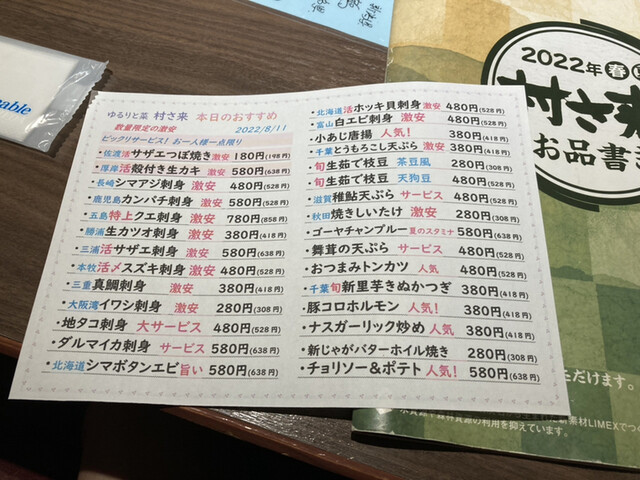 ゆるりと菜 村さ来 本日のおすすめ
数量限定の激安 2022/8/11
ビックリサービス! お一人様一点限り
・佐渡活サザエつぼ焼き激安 180円(198円)
・厚岸活殻付き生カキ 激安 580円(638円)
・長崎シマアジ刺身 激安 480円(528円)
・鹿児島カンパチ刺身 激安 580円(638円)
・五島特上クエ刺身 激安 780円(858円)
・勝浦生カツオ刺身 激安 380円(418円)
・三浦活サザエ刺身 激安 580円(638円)
・本牧活〆スズキ刺身 激安 480円(528円)
・三重真鯛刺身 激安 380円(418円)
・大阪湾イワシ刺身 激安 280円(308円)
・地タコ刺身 大サービス 480円(528円)
・ダルマイカ刺身 サービス 580円(638円)
・北海道シマボタンエビ旨い 580円(638円)
・北海道活ホッキ貝刺身激安 480円(528円)
・富山白エビ刺身 激安 480円(528円)
・小あじ唐揚 人気! 380円(418円)
・千葉とうもろこし天ぷら激安 380円(418円)
・旬生茹で枝豆 茶豆風 280円(308円)
・旬生茹で枝豆 天狗豆 480円(528円)
・滋賀稚鮎天ぷら サービス 480円(528円)
・秋田焼きしいたけ 激安 280円(308円)
・ゴーヤチャンプルー夏のスタミナ 580円(638円)
・舞茸の天ぷら サービス 480円(528円)
・おつまみトンカツ 人気 480円(528円)
・千葉旬新里芋きぬかつぎ 380円(418円)
・豚コロホルモン 人気! 380円(418円)
・ナスガーリック炒め 人気! 380円(418円)
・新じゃがバターホイル焼き 280円(308円)
・チョリソー&ポテト 人気! 580円(638円)
2022年 春
村さ来
お品書
ただけます。
の利用を抑えています。
素材LIMEXでつ
able